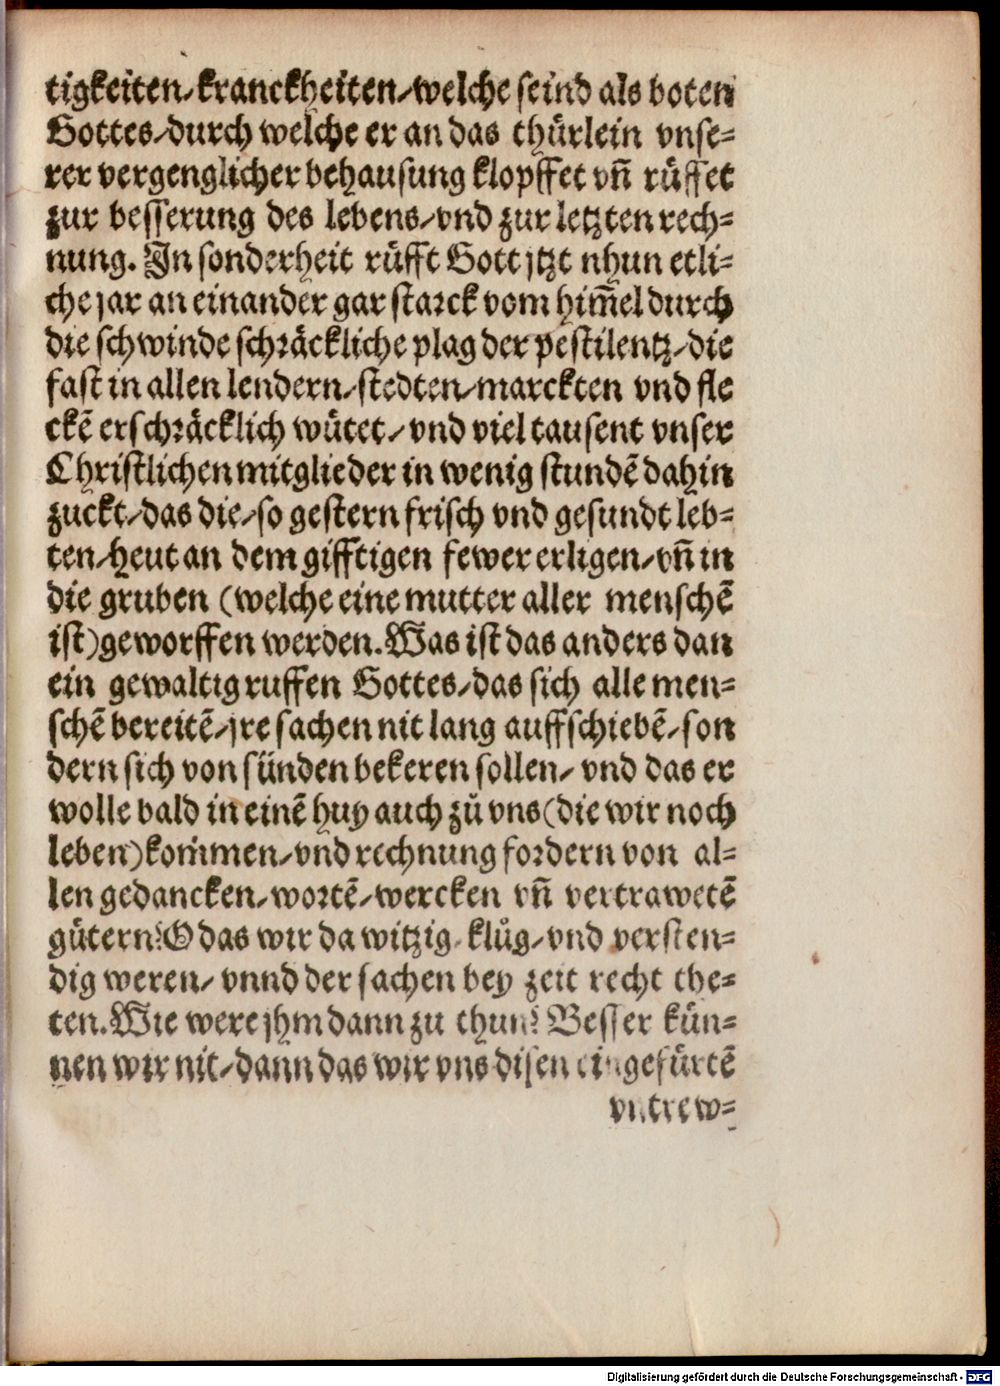 tigkeiten/kranckheiten/welche seind als boten
Gottes/durch welche er an das thürlein vnse=
rer vergenglicher behausung klopffet vñ rüffet
zur besserung des lebens/vnd zur letzten rech=
nung. In sonderheit rüfft Gott jtzt nhun etli=
che jar an einander gar starck vom him̃el durch
die schwinde schräckliche plag der pestilentz/die
fast in allen lendern/stedten/marckten vnd fle
ckẽ erschräcklich wütet/vnd viel tausent vnser
Christlichen mitglieder in wenig stundẽ dahin
zuckt/das die/so gestern frisch vnd gesundt leb=
ten/heut an dem gifftigen fewer erligen/vñ in
die gruben (welche eine mutter aller menschẽ
ist)geworffen werden. Was ist das anders dan
ein gewaltig ruffen Gottes/das sich alle men=
schẽ bereitẽ/jre sachen nit lang auffschiebẽ/son
dern sich von sünden bekeren sollen/vnd das er
wolle bald in einẽ huy auch zů vns(die wir noch
leben)kommen/vnd rechnung fordern von al=
len gedancken/wortẽ/wercken vñ vertrawetẽ
gütern? O das wir da witzig/klůg/vnd versten=
dig weren/vnnd der sachen bey zeit recht the=
ten. Wie were jhm dann zu thun? Besser kün=
nen wir nit/dann das wir vns disen eingefürtẽ
vntrew=
Digitalisierung gefördert durch die Deutsche Forschungsgemeinschaft - DFG